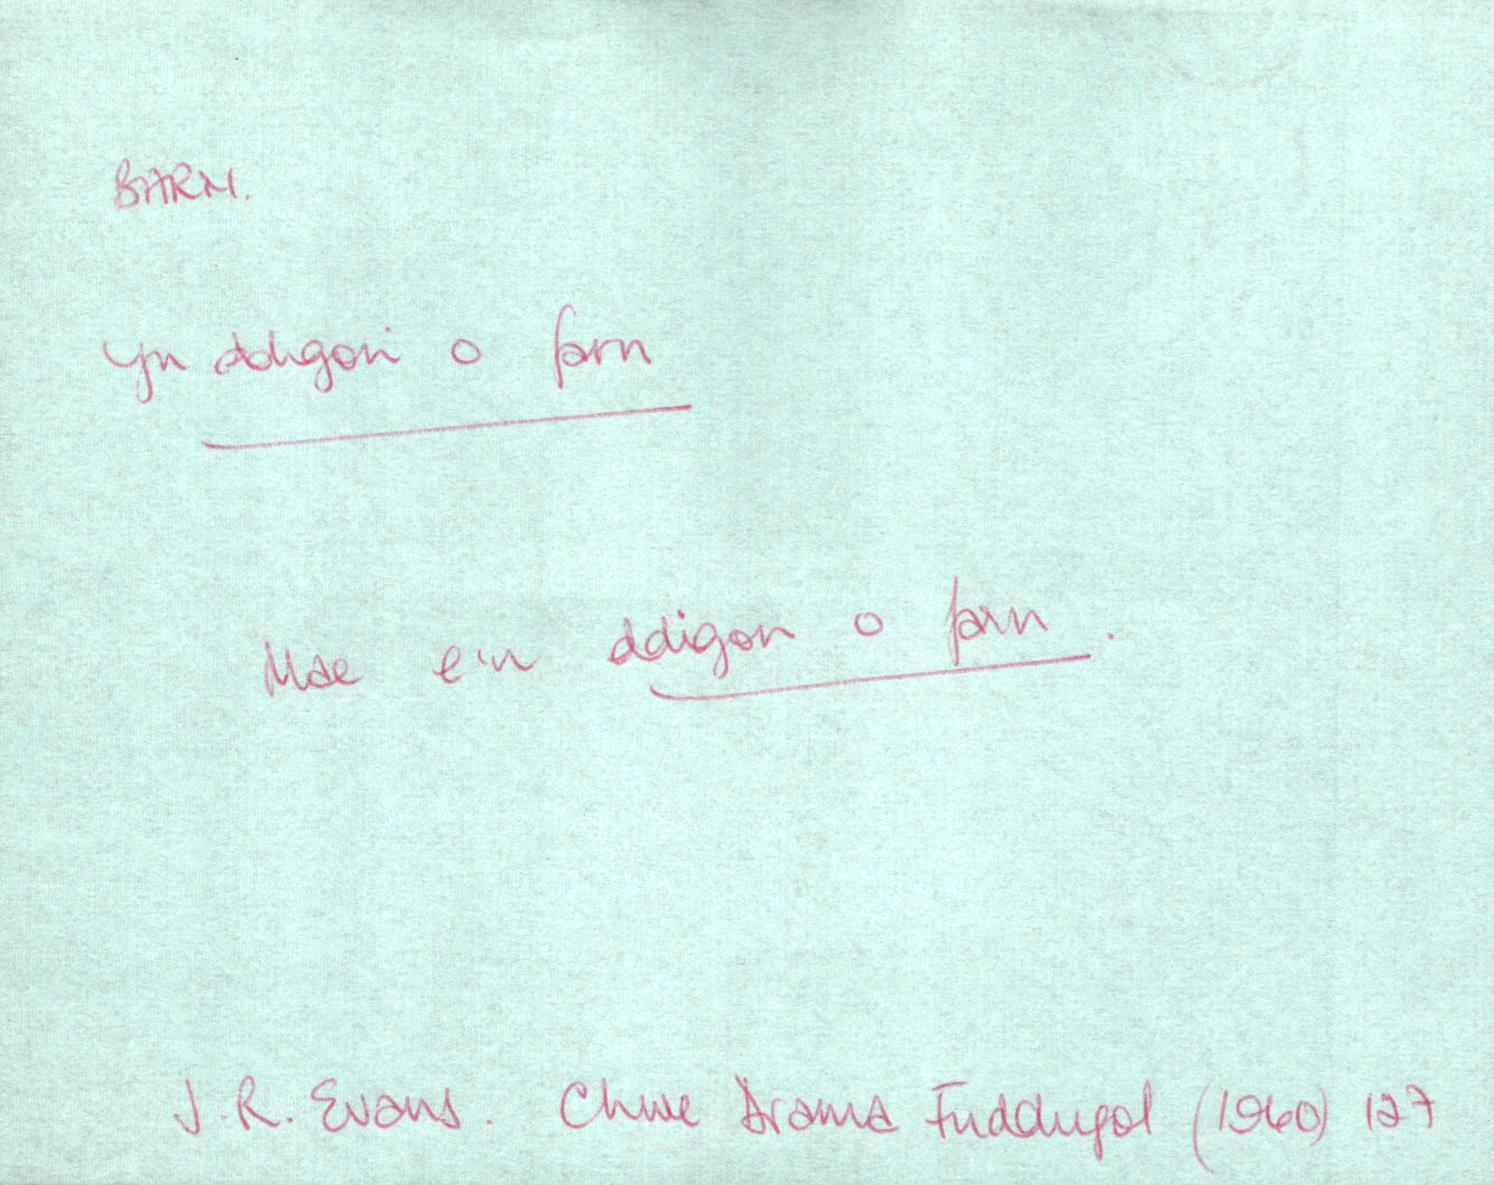 BARN.
yn ddigon o farn
Mae e'n ddigon o farn.
J.R. Evans. Chwe Drama Fuddugol (1960) 127